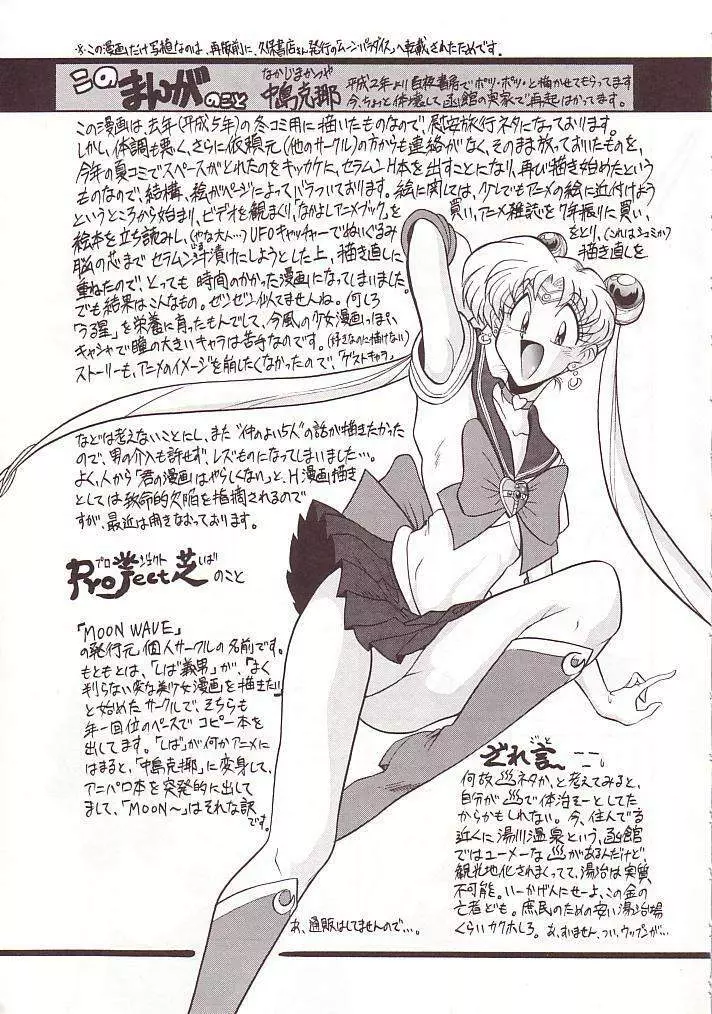 ※この漫画だけ写植なのは、再販前に、久保書店さん発行の「ムーンパラダイス」へ転載されたためです。
このまんがのこと
なかじまかつや
中島克耶
平成2年より白夜書房でポツ・ポツ・と描かせてもらってます
今、ちょっと体壊して函館の実家で再起はかってます。
この漫画は、去年(平成5年)の冬コミ用に描いたものなので、慰安旅行ネタになっております。
しかし、体調も悪く、さらに依頼元(他のサークル)の方からも連絡がなく、そのまま放っておいたものを、
今年の夏コミでスペースがとれたのをキッカケに、セラムンH本を出すことになり、再び描き始めたという
ものなので、結構、絵がページによってバラついております。絵に関しては、少しでもアニメの絵に近付けよう
というところから始まり、ビデオを観まくり「なかよしアニメブック」を買い、アニメ雑誌を7年振りに買い、
絵本を立ち読みし、(やな大人…)UFOキャッチャーでぬいぐるみをとり、(これはシュミか)
脳の芯までセラムン汁漬けにしようとした上、描き直しに描き直しを
重ねたので、とっても時間のかかった漫画になってしまいました。
でも結果はこんなもの。ゼンゼン似てませんね。(何しろ
「うる星」を栄養に育ったもんでして、今風の少女漫画っぽい、
キャシャで瞳の大きいキャラは苦手なのです。(好きなのに描けない)
ストーリーも、アニメのイメージを崩したくなかったので、「ゲストキャラ」
などは考えないことにし、また“仲のよい5人”の話が描きたかった
ので、男の介入も許せず、レズものになってしまいました…。
よく、人から「君の漫画はやらしくない」と、H漫画描き
としては致命的欠陥を指摘されるので
すが、最近は開きなおっております。
プロジェクトしば
Project芝のこと
「MOON WAVE」
の発行元、個人サークルの名前です。
もともとは、「しば義男」が「よく
判らない変な美少女漫画」を描きたい
と始めたサークルで、そちらも
年一回位のペースでコピー本を
出してます。「しば」が何かアニメに
はまると、「中島克耶」に変身して、
アニパロ本を突発的に出して
まして、「MOON〜」はそれな訳
です。
ざれ言
ごと
何故♨ネタか、と考えてみると、
自分が♨で体治そーとしてた
からかもしれない。今、住んでる
近くに湯川温泉という、函館
ではユーメーな♨があるんだけど、
観光地化されまくってて、湯治は実質
不可能。いーかげんにせーよ、この金の
亡者ども。庶民のための安い湯治場
くらいカクホしろ。あ、すいません、つい、ウップンが…
あ、通販はしてませんので…。